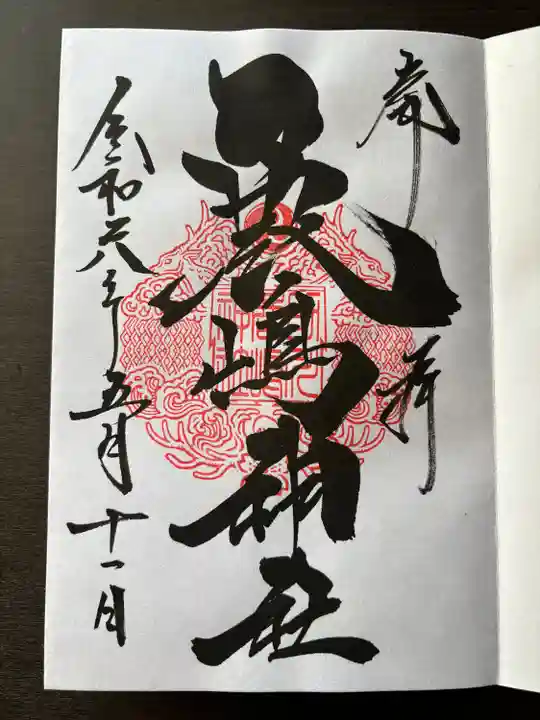 奉拝
嚴嶋神社
令和六年五月十一日